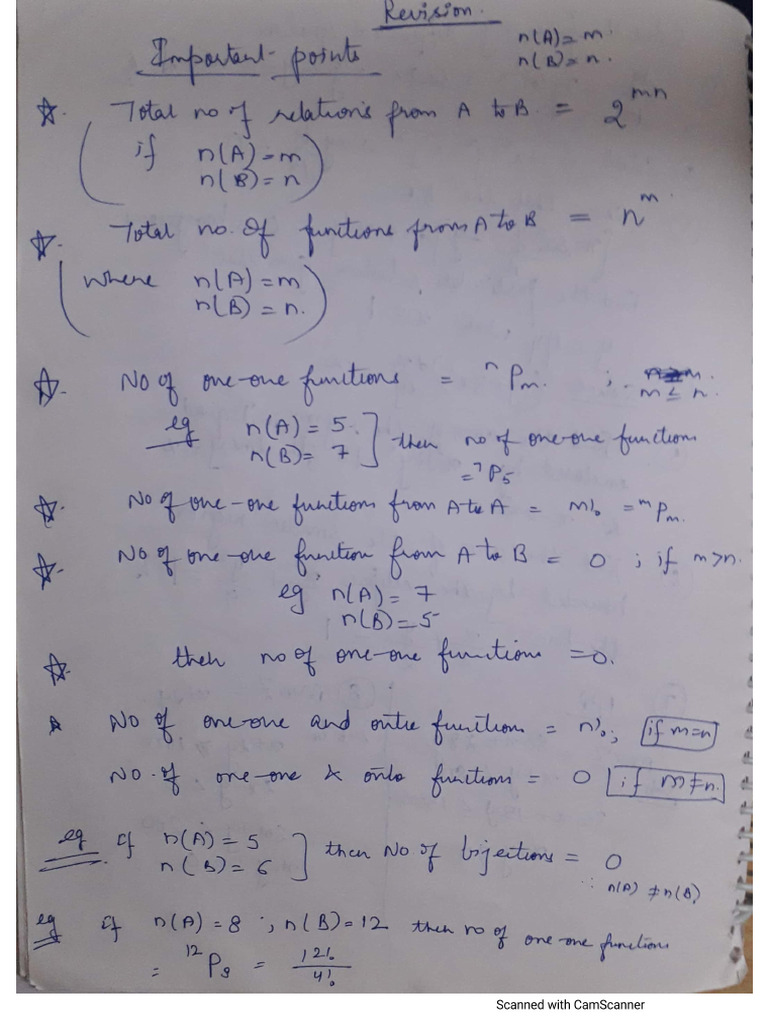 Revision.
Important points
n(A)=m.
n(B)=n.
☆. Total no of relations from A to B = 2^mn
( if n(A)=m
n(B)=n )
☆. Total no. of functions from A to B = n^m
( where n(A)=m
n(B)=n. )
☆. No of one-one functions = ⁿPm. ;
m ≤ n.
eg n(A) = 5.
n(B) = 7 ] then no of one-one functions
= ⁷P₅
☆. No of one-one functions from A to A = m! = ᵐPm.
☆. No of one-one function from A to B = 0 ; if m>n.
eg n(A) = 7
n(B) = 5
☆ then no of one-one functions =0.
☆ No of one-one and onto functions = n!; if m=n
No. of one-one & onto functions = 0 if m≠n.
eg if n(A) = 5
n(B) = 6 ] then No of bijections = 0
∵ n(A) ≠ n(B)
eg if n(A) = 8 ; n(B) = 12 then no of one-one functions
= ¹²P₈ = 12!/4!
Scanned with CamScanner